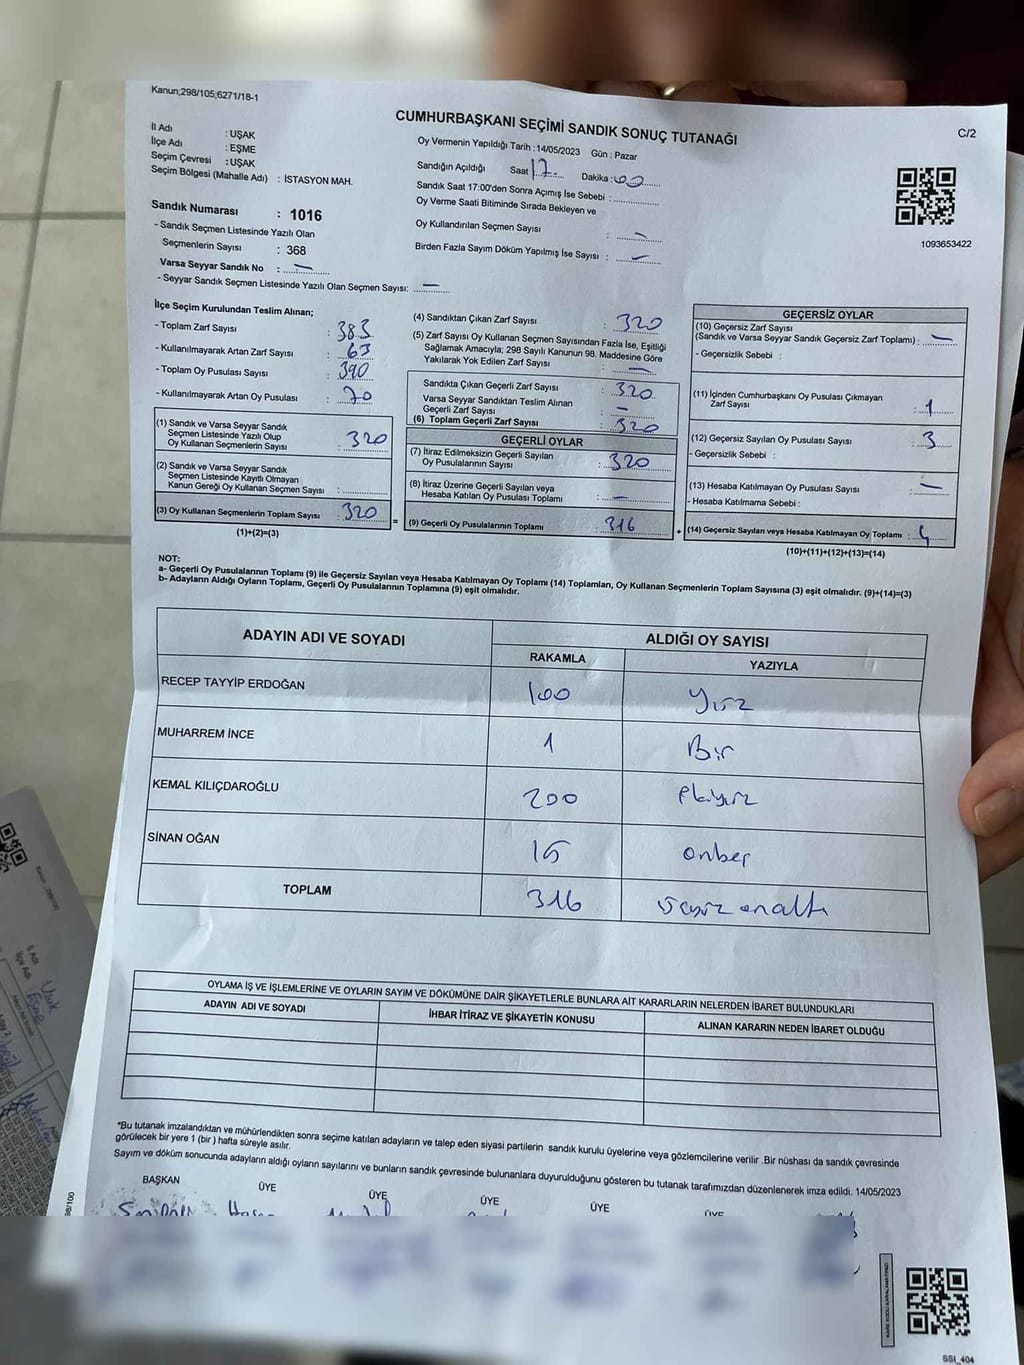 Kanun;298/105;6271/18-1
CUMHURBAŞKANI SEÇİMİ SANDIK SONUÇ TUTANAĞI
C/2
İl Adı : UŞAK
İlçe Adı : EŞME
Seçim Çevresi : UŞAK
Seçim Bölgesi (Mahalle Adı) : İSTASYON MAH.
Oy Vermenin Yapıldığı Tarih :14/05/2023 Gün : Pazar
Sandığın Açıldığı Saat 17. Dakika : 00
Sandık Saat 17:00'den Sonra Açımış İse Sebebi :
Oy Verme Saati Bitiminde Sırada Bekleyen ve
Oy Kullandırılan Seçmen Sayısı : —
Birden Fazla Sayım Döküm Yapılmış İse Sayısı : —
1093653422
Sandık Numarası : 1016
- Sandık Seçmen Listesinde Yazılı Olan
Seçmenlerin Sayısı : 368
Varsa Seyyar Sandık No : —
- Seyyar Sandık Seçmen Listesinde Yazılı Olan Seçmen Sayısı: —
İlçe Seçim Kurulundan Teslim Alınan;
- Toplam Zarf Sayısı : 383
- Kullanılmayarak Artan Zarf Sayısı : 63
- Toplam Oy Pusulası Sayısı : 390
- Kullanılmayarak Artan Oy Pusulası : 70
(1) Sandık ve Varsa Seyyar Sandık
Seçmen Listesinde Yazılı Olup
Oy Kullanan Seçmenlerin Sayısı : 320
(2) Sandık ve Varsa Seyyar Sandık
Seçmen Listesinde Kayıtlı Olmayan
Kanun Gereği Oy Kullanan Seçmen Sayısı :
(3) Oy Kullanan Seçmenlerin Toplam Sayısı : 320
(1)+(2)=(3)
=
(4) Sandıktan Çıkan Zarf Sayısı : 320
(5) Zarf Sayısı Oy Kullanan Seçmen Sayısından Fazla İse, Eşitliği
Sağlamak Amacıyla; 298 Sayılı Kanunun 98. Maddesine Göre
Yakılarak Yok Edilen Zarf Sayısı : —
Sandıkta Çıkan Geçerli Zarf Sayısı : 320
Varsa Seyyar Sandıktan Teslim Alınan
Geçerli Zarf Sayısı : —
(6) Toplam Geçerli Zarf Sayısı : 320
GEÇERLİ OYLAR
(7) İtiraz Edilmeksizin Geçerli Sayılan
Oy Pusulalarının Sayısı : 320
(8) İtiraz Üzerine Geçerli Sayılan veya
Hesaba Katılan Oy Pusulası Toplamı : —
(9) Geçerli Oy Pusulalarının Toplamı : 316
+
GEÇERSİZ OYLAR
(10) Geçersiz Zarf Sayısı
(Sandık ve Varsa Seyyar Sandık Geçersiz Zarf Toplamı) : —
- Geçersizlik Sebebi :
(11) İçinden Cumhurbaşkanı Oy Pusulası Çıkmayan
Zarf Sayısı : 1
(12) Geçersiz Sayılan Oy Pusulası Sayısı : 3
- Geçersizlik Sebebi :
(13) Hesaba Katılmayan Oy Pusulası Sayısı : —
- Hesaba Katılmama Sebebi :
(14) Geçersiz Sayılan veya Hesaba Katılmayan Oy Toplamı : 4
(10)+(11)+(12)+(13)=(14)
NOT:
a- Geçerli Oy Pusulalarının Toplamı (9) ile Geçersiz Sayılan veya Hesaba Katılmayan Oy Toplamı (14) Toplamları, Oy Kullanan Seçmenlerin Toplam Sayısına (3) eşit olmalıdır. (9)+(14)=(3)
b- Adayların Aldığı Oyların Toplamı, Geçerli Oy Pusulalarının Toplamına (9) eşit olmalıdır.
ADAYIN ADI VE SOYADI ALDIĞI OY SAYISI
RAKAMLA YAZIYLA
RECEP TAYYİP ERDOĞAN 100 Yüz
MUHARREM İNCE 1 Bir
KEMAL KILIÇDAROĞLU 200 ikiyüz
SİNAN OĞAN 15 onbeş
TOPLAM 316 üçyüz onaltı
OYLAMA İŞ VE İŞLEMLERİNE VE OYLARIN SAYIM VE DÖKÜMÜNE DAİR ŞİKAYETLERLE BUNLARA AİT KARARLARIN NELERDEN İBARET BULUNDUKLARI
ADAYIN ADI VE SOYADI İHBAR İTİRAZ VE ŞİKAYETİN KONUSU ALINAN KARARIN NEDEN İBARET OLDUĞU
*Bu tutanak imzalandıktan ve mühürlendikten sonra seçime katılan adayların ve talep eden siyasi partilerin sandık kurulu üyelerine veya gözlemcilerine verilir .Bir nüshası da sandık çevresinde
görülecek bir yere 1 (bir ) hafta süreyle asılır.
Sayım ve döküm sonucunda adayların aldığı oyların sayılarını ve bunların sandık çevresinde bulunanlara duyurulduğunu gösteren bu tutanak tarafımızdan düzenlenerek imza edildi. 14/05/2023
BAŞKAN ÜYE ÜYE ÜYE ÜYE ÜYE
98/100
SSI_404